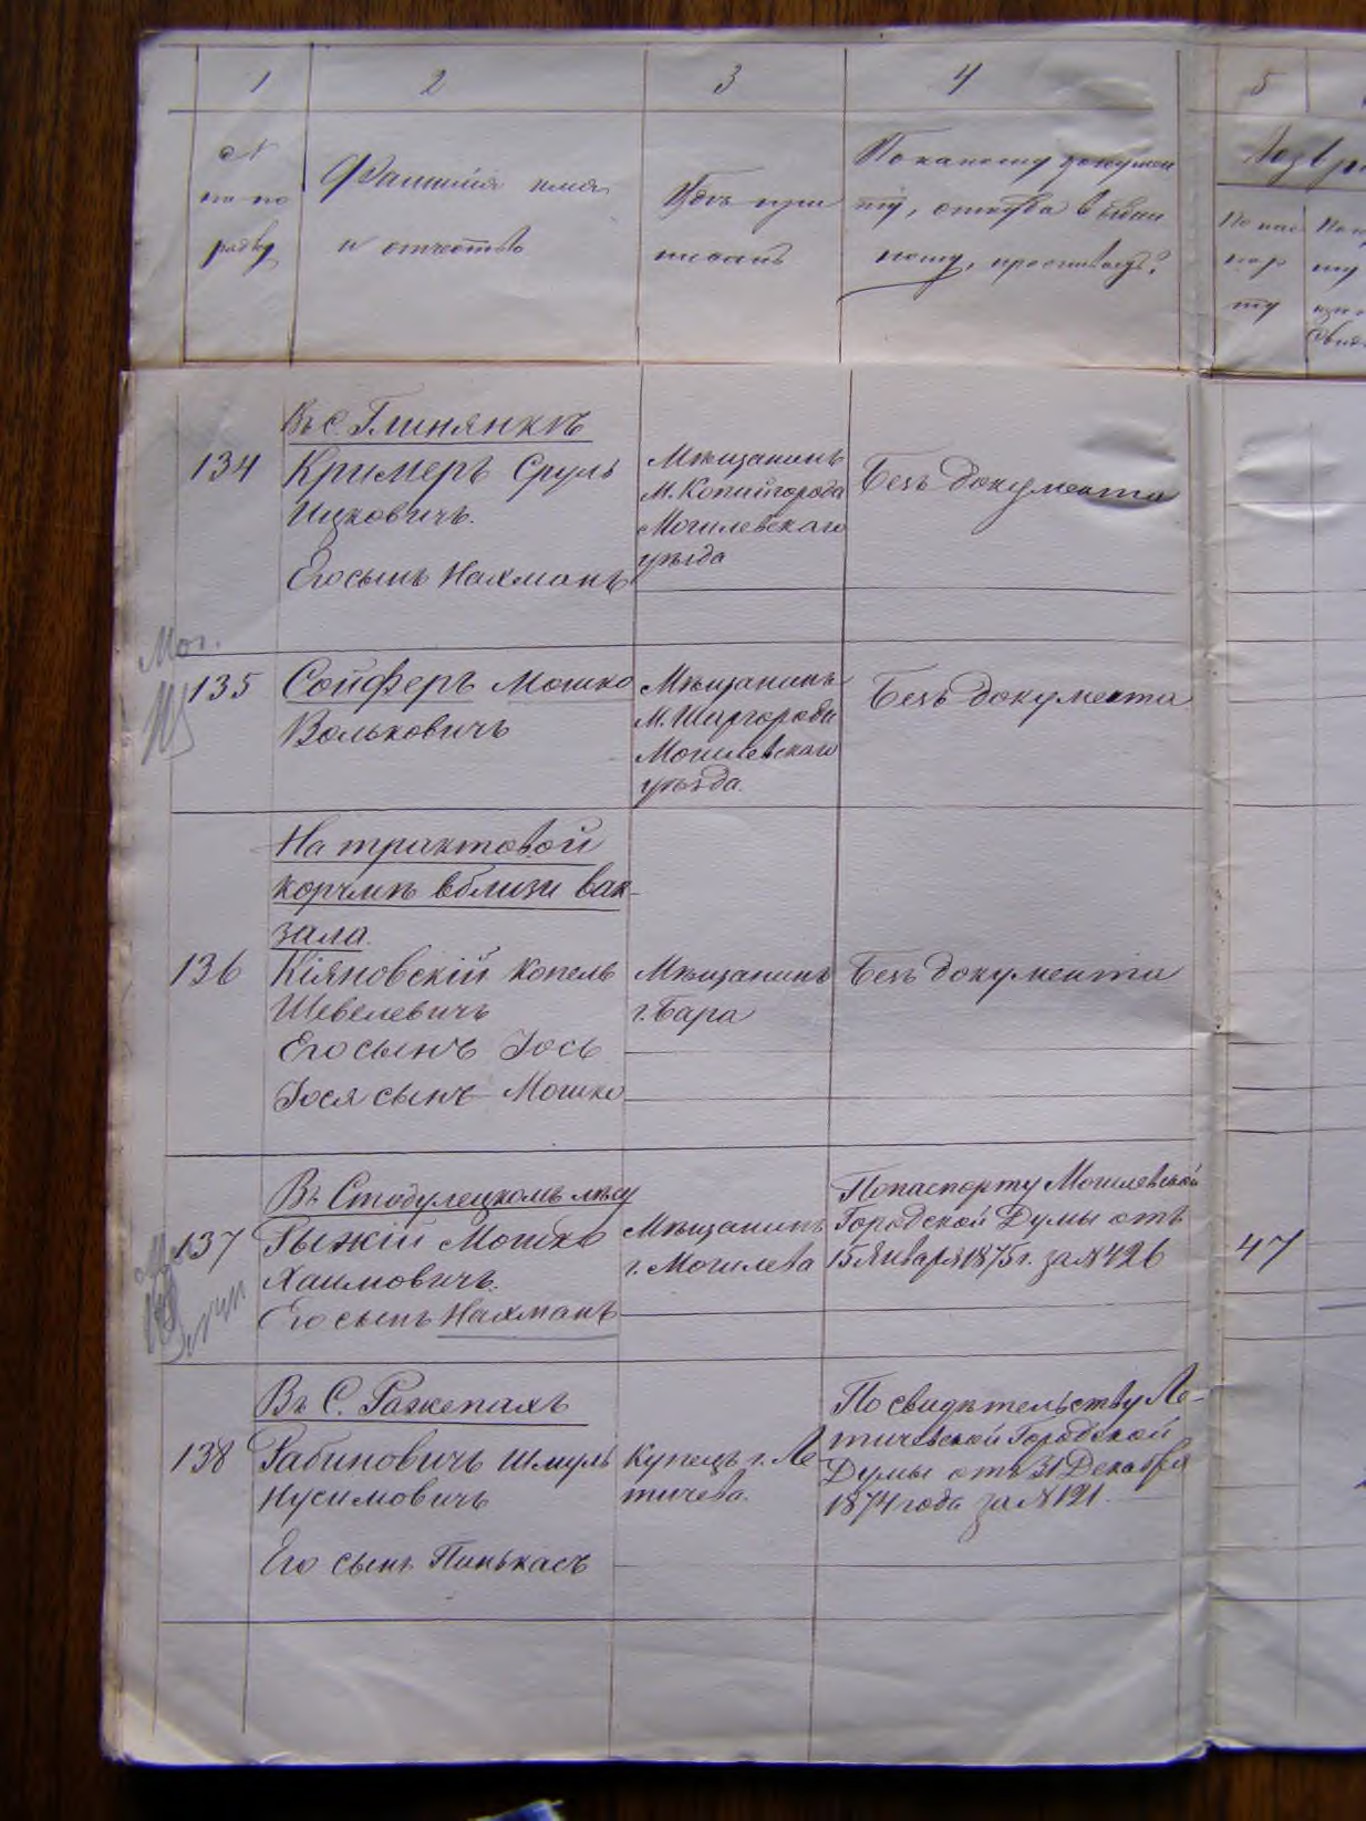 1 2 3 4 5
№
по по
рядку
Фамилія имя
и отчество
Гдѣ при
писанъ
По какому докумен
ту, откуда выдан
ному, проживаетъ?
Возвра
По пас
пор
ту
По
Въ С. Глинянкѣ
134 Кримеръ Сруль
Ицковичъ.
Его сынъ Нахманъ
Мѣщанинъ
М. Копайгорода
Могилевскаго
уѣзда
Безъ документа
Мог.
135 Сойферъ Мошко
Вольковичъ
Мѣщанинъ
М. Шаргорода
Могилевскаго
уѣзда.
Безъ документа
На трактовой
корчмѣ вблизи вак-
зала.
136 Кіяновскій Копель
Шевелевичъ
Его сынъ Іось
Іося сынъ Мошко
Мѣщанинъ
г. Бара
Безъ документа
Въ Стодулецкомъ лѣсу
137 Рыжій Мошко
Хаимовичъ.
Его сынъ Нахманъ
Мѣщанинъ
г. Могилева
По паспорту Могилевской
Городской Думы отъ
15 Января 1875 г. за № 426
47
Въ С. Ражепахъ
138 Рабиновичъ Шмуль
Нусимовичъ
Его сынъ Пинькасъ
Купецъ г. Ле-
тичева.
По свидѣтельству Ле-
тичевской Городской
Думы отъ 31 Декабря
1874 года за № 121.